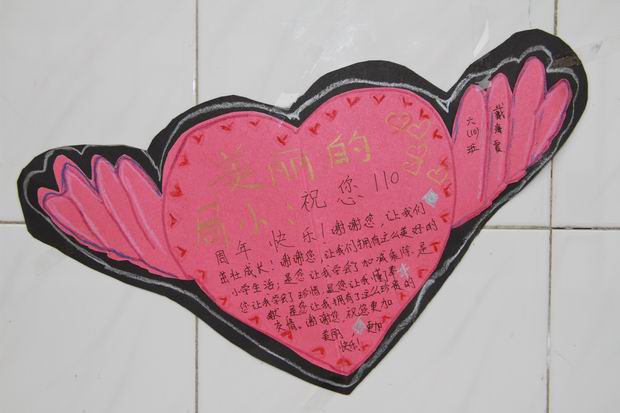 美丽的
周小:
祝您110
周年快乐!谢谢您,让我们
茁壮成长!谢谢您,让我们拥有这么美好的
小学生活,是您让我学会了加减乘除.是
您让我学会了珍惜,是您让我懂
是您让我拥有了这么珍贵的
友情。谢谢您,祝您更加
美丽, 更加
快乐!
六(10)班